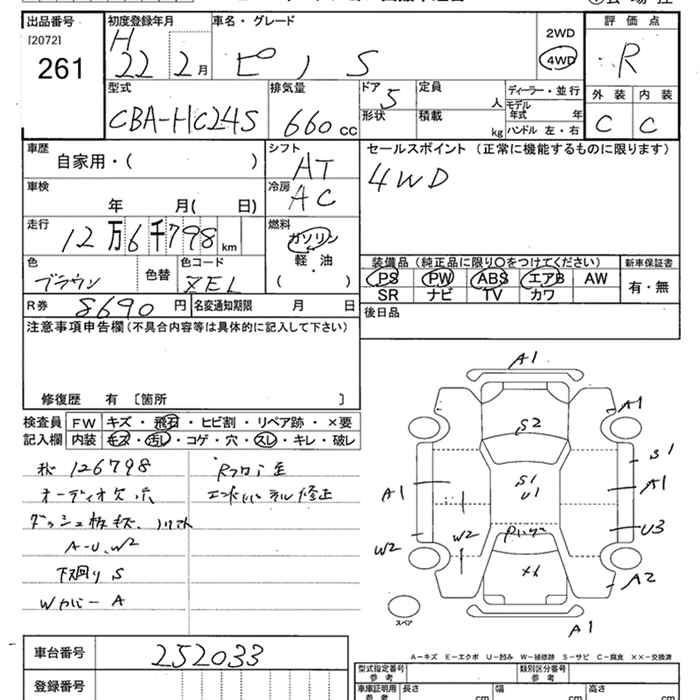 出品番号 初度登録年月 車名・グレード 評価点
[2072] H 2WD
261 22 2月 ピノ S 4WD R
型式 排気量 ドア 5 定員 人 ディーラー・並行 外装 内装
CBA-HC24S 660cc 形状 積載 kg モデル年式 年 C C
ハンドル 左・右
車歴 シフト セールスポイント (正常に機能するものに限ります)
自家用・( ) AT 4WD
車検 冷房
年 月( 日) AC
走行 燃料
12万6千798km ガソリン
軽・油
( )
色 色替 色コード 装備品 (純正品に限り○をつけてください) 新車保証書
ブラウン ZEL PS PW ABS エアB AW 有・無
SR ナビ TV カワ
R券 8690円 名変通知期限 月 日 後日品
注意事項申告欄(不具合内容等は具体的に記入して下さい)
修復歴 有 [箇所 ]
検査員 FW キズ・飛石・ヒビ割・リペア跡・×要
記入欄 内装 キズ・汚し・コゲ・穴・スレ・キレ・破レ
126798
オーディオ欠 穴
ダッシュ
A-U、W2
下廻り S
Wカバー A
修正
A1
A1
S2
S1
S1
U1
A1
A1
U3
W2
W2
A2
スペア
A1
A-キズ E-エクボ U-凹み W-補修跡 S-サビ C-腐食 ××-交換済
車台番号 252033 型式指定番号 参考 類別区分番号 参考
登録番号 車庫証明用 参考 長さ cm 幅 cm 高さ cm